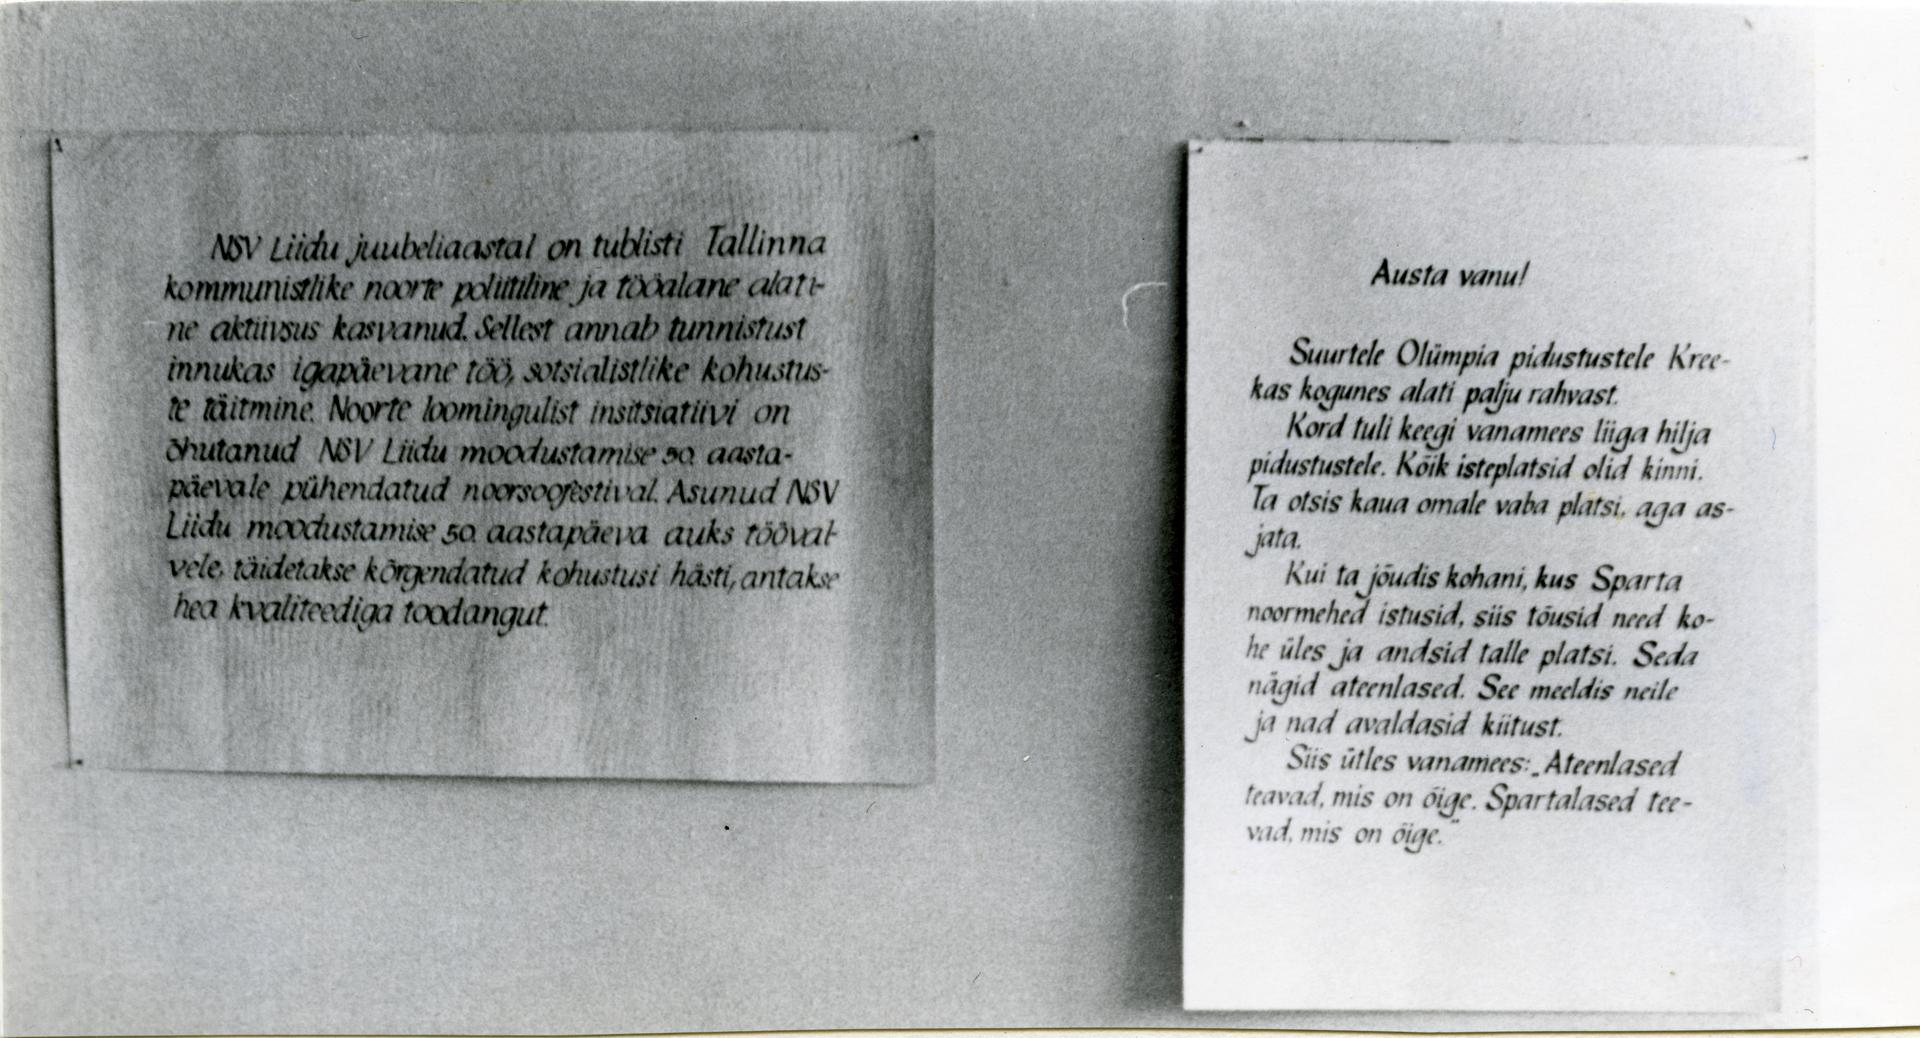 NSV Liidu juubeliaastal on tublisti Tallinna
kommunistlike noorte poliitiline ja tööalane alati-
ne aktiivsus kasvanud. Sellest annab tunnistust
innukas igapäevane töö, sotsialistlike kohustus-
te täitmine. Noorte loomingulist insitsiatiivi on
õhutanud NSV Liidu moodustamise 50. aasta-
päevale pühendatud noorsoofestival. Asunud NSV
Liidu moodustamise 50. aastapäeva auks töövat-
vele, täidetakse kõrgendatud kohustusi hästi, antakse
hea kvaliteediga toodangut.
Austa vanu!
Suurtele Olümpia pidustustele Kree-
kas kogunes alati palju rahvast.
Kord tuli keegi vanamees liiga hilja
pidustustele. Kõik isteplatsid olid kinni.
Ta otsis kaua omale vaba platsi, aga as-
jata.
Kui ta jõudis kohani, kus Sparta
noormehed istusid, siis tõusid need ko-
he üles ja andsid talle platsi. Seda
nägid ateenlased. See meeldis neile
ja nad avaldasid kiitust.
Siis ütles vanamees: „Ateenlased
teavad, mis on õige. Spartalased tee-
vad, mis on õige.”